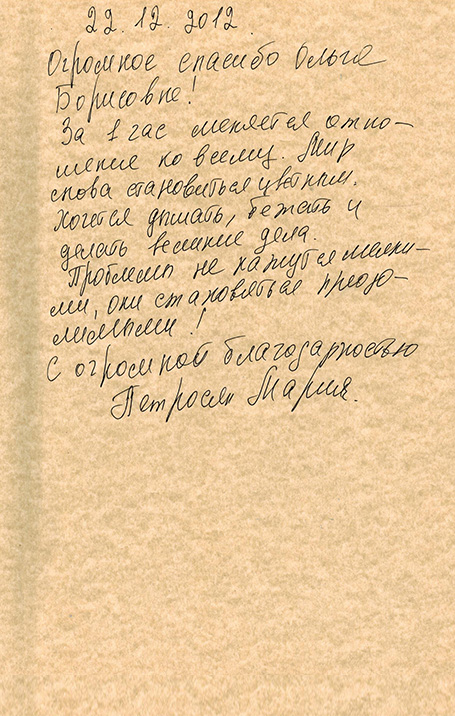 22.12.2012.
Огромное спасибо Ольге
Борисовне!
За 1 час меняется отно-
шение ко всему. Мир
снова становиться цветным.
Хочется дышать, бежать и
делать великие дела.
Проблемы не кажутся мелки-
ми, они становяться преодо-
лимыми!
С огромной благодарностью
Петросян Мария.